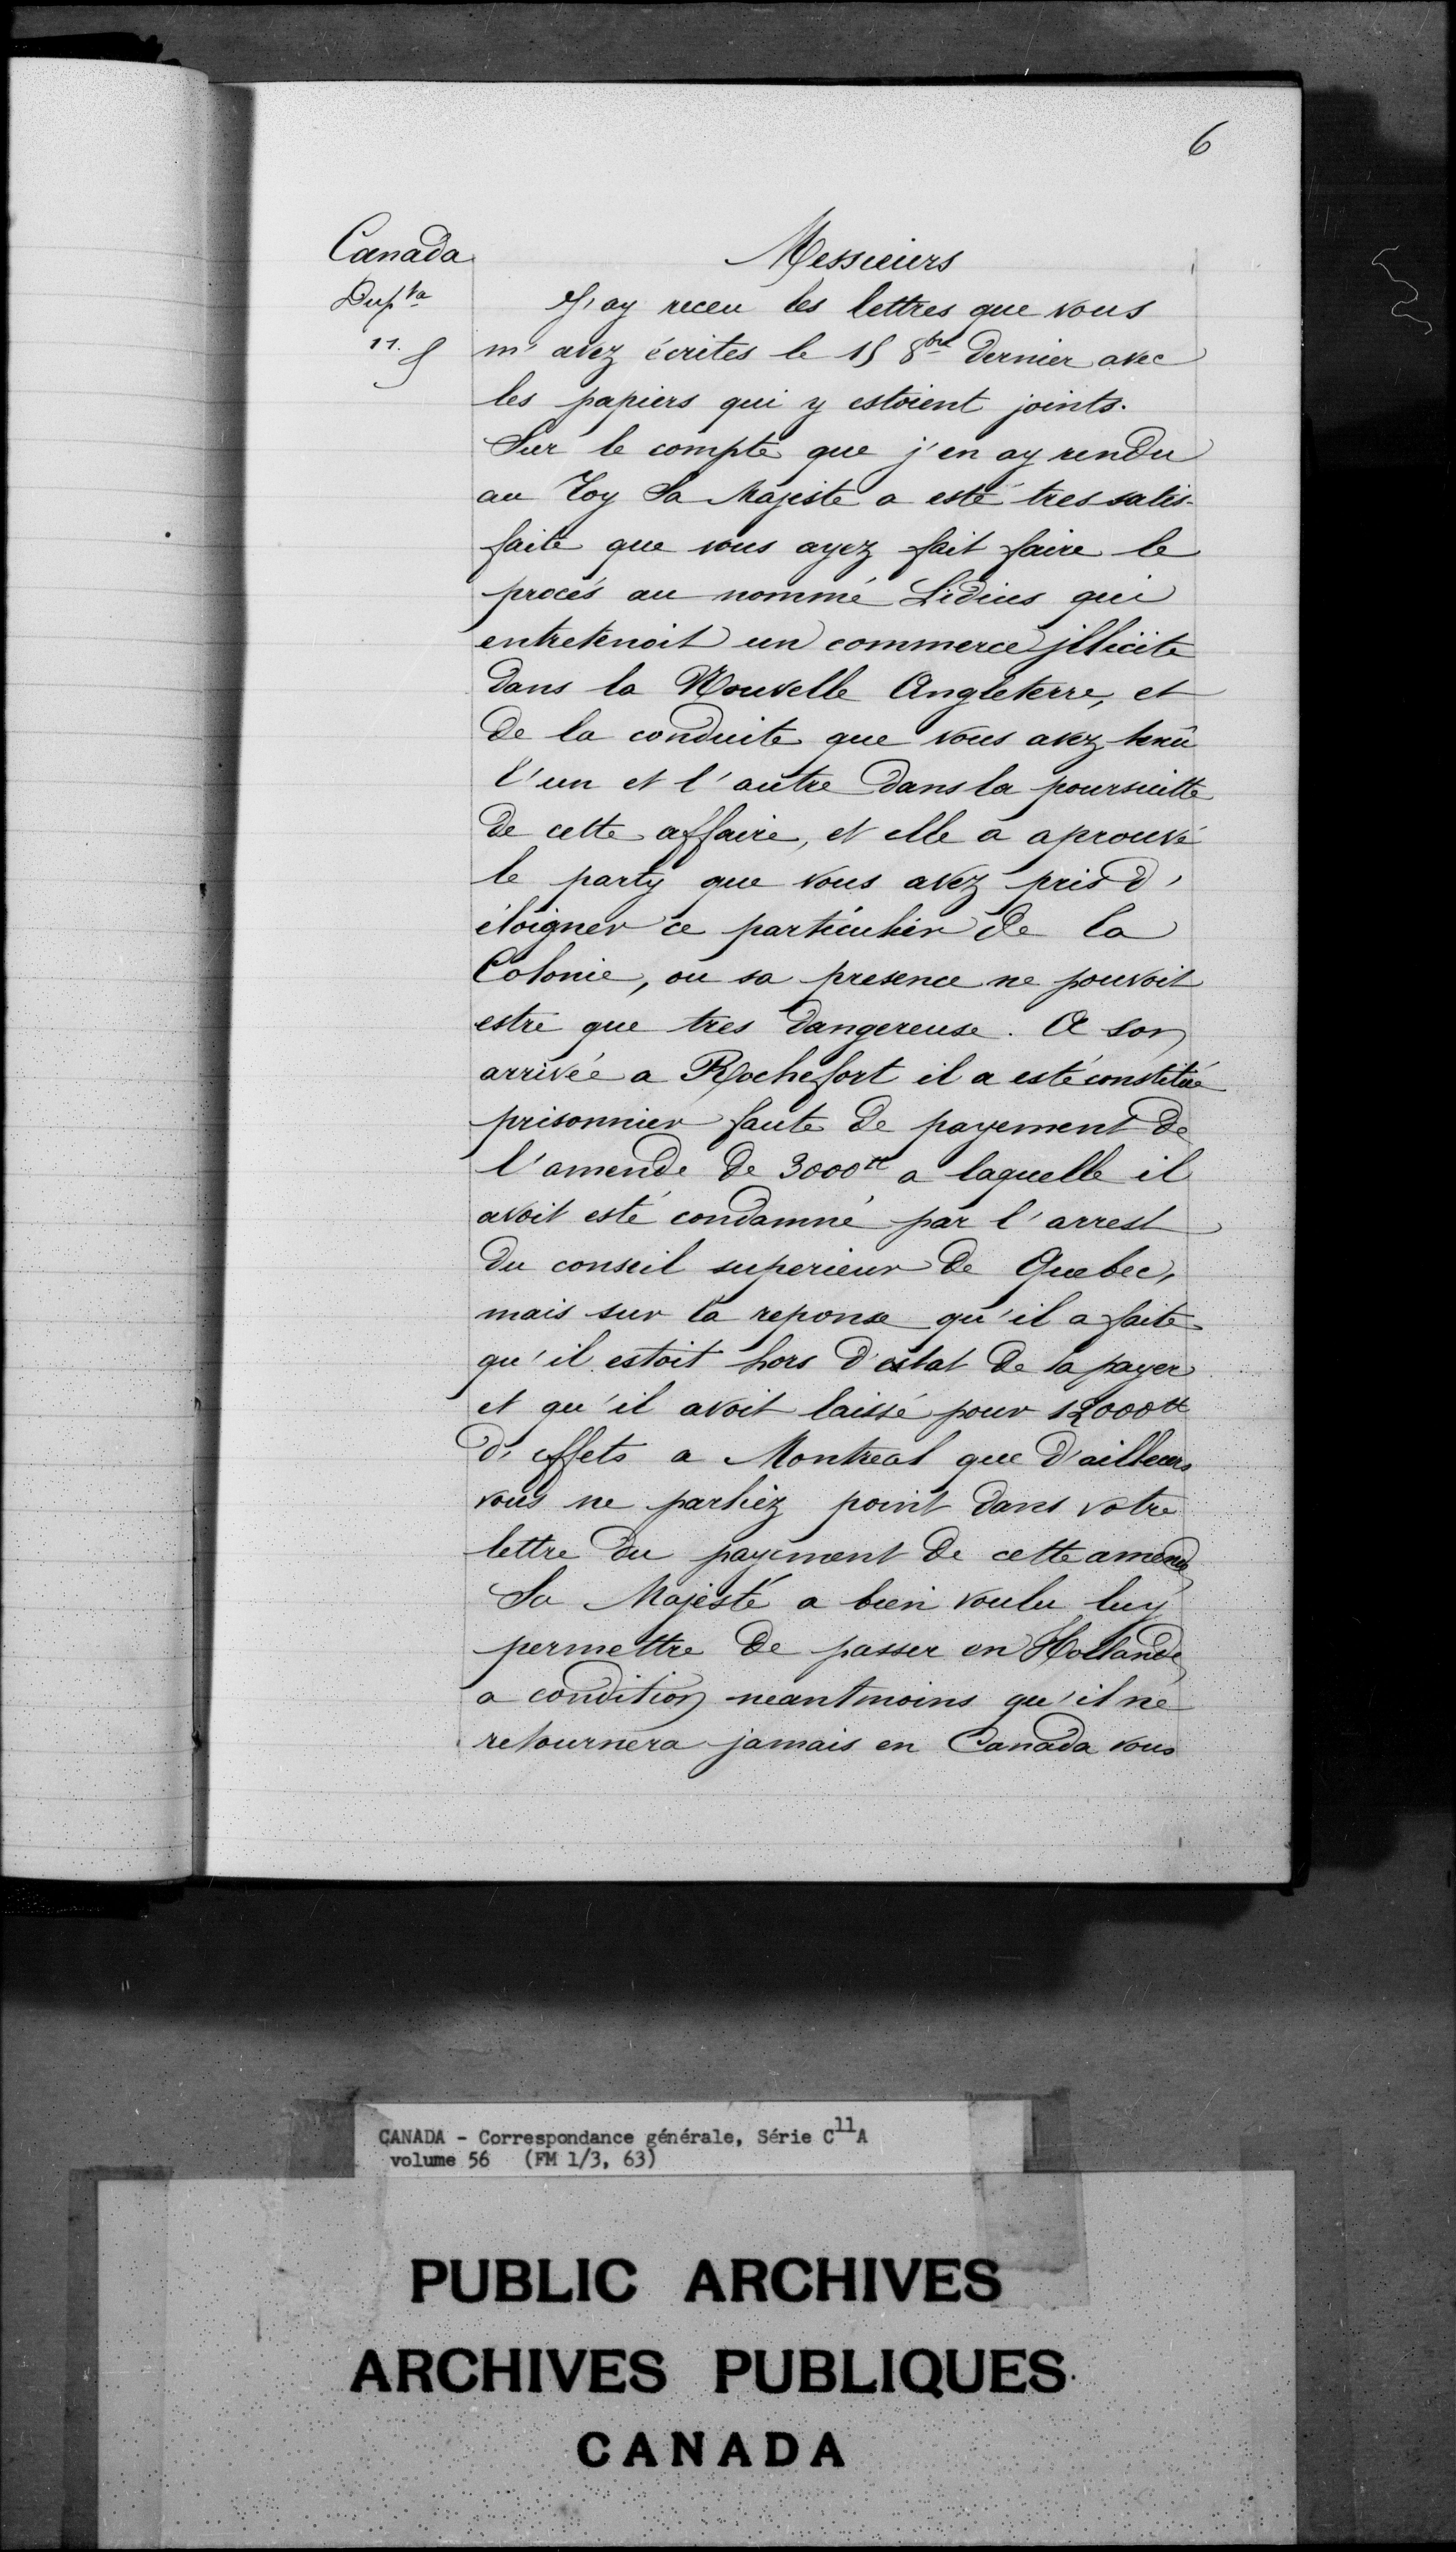 6
Canada
Dup^ta
11. 5
Messieurs
J'ay receu les lettres que vous
m'avez écrites le 15 8bre dernier avec
les papiers qui y estoient joints.
Sur le compte que j'en ay rendu
au Roy Sa Majeste a esté tres satis-
faite que vous ayez fait faire le
procés au nommé Lidius qui
entretenoit un commerce jllicite
dans la Nouvelle Angleterre, et
de la conduite que vous avez tenü
l'un et l'autre dans la poursuitte
de cette affaire, et elle a aprouvé
le party que vous avez pris d'
éloigner ce particulier de la
Colonie, ou sa presence ne pouvoit
estre que tres dangereuse. A son
arrivée a Rochefort il a esté constitué
prisonnier faute de payement de
l'amende de 3000tt a laquelle il
avoit esté condamné par l'arrest
du conseil superieur de Quebec,
mais sur la reponse qu'il a faite
qu'il estoit hors d'estat de la payer
et qu'il avoit laissé pour 12000tt
d'effets a Montreal que d'ailleurs
vous ne parliez point dans votre
lettre du payement de cette amende
Sa Majesté a bien voulu luy
permettre de passer en Hollande
a condition neantmoins qu'il ne
retournera jamais en Canada vous
CANADA - Correspondance générale, Série C11A
volume 56 (FM 1/3, 63)
PUBLIC ARCHIVES
ARCHIVES PUBLIQUES
CANADA